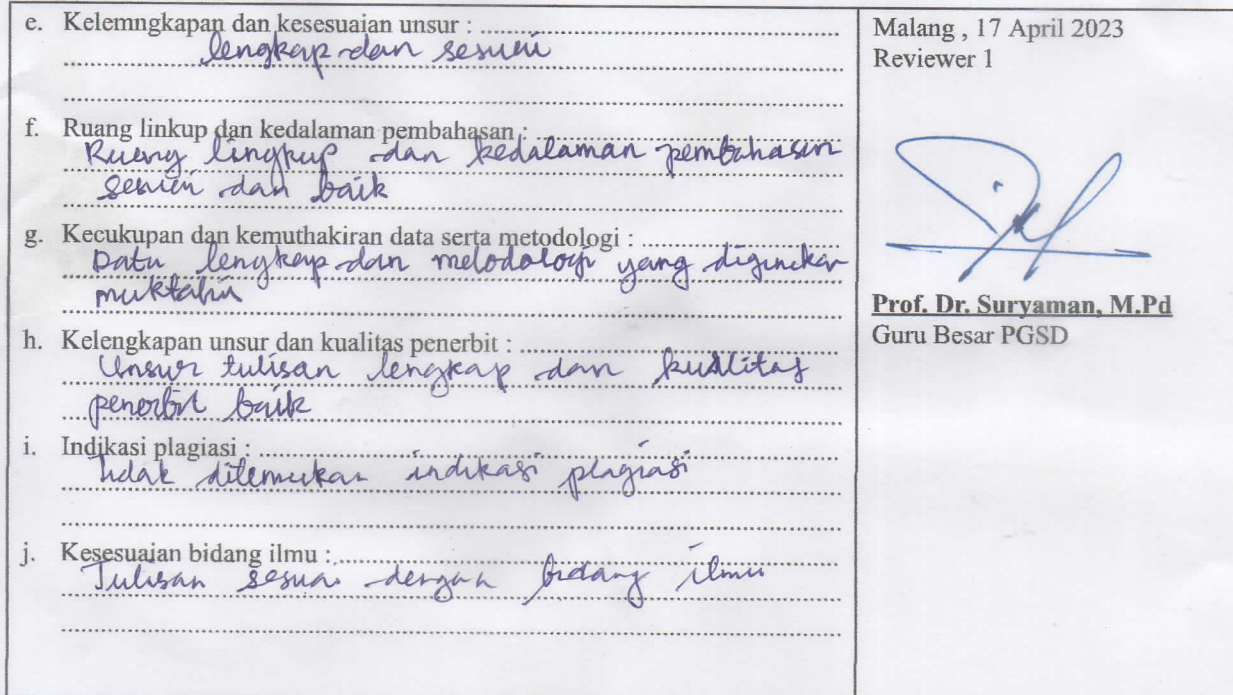 e. Kelemngkapan dan kesesuaian unsur :
lengkap dan sesuai
f. Ruang linkup dan kedalaman pembahasan :
Ruang lingkup dan kedalaman pembahasan
sesuai dan baik
g. Kecukupan dan kemuthakiran data serta metodologi :
Data lengkap dan metodologi yang digunakan
muktahir
h. Kelengkapan unsur dan kualitas penerbit :
Unsur tulisan lengkap dan kualitas
penerbit baik
i. Indikasi plagiasi :
Tidak ditemukan indikasi plagiasi
j. Kesesuaian bidang ilmu :
Tulisan sesuai dengan bidang ilmu
Malang , 17 April 2023
Reviewer 1
Prof. Dr. Suryaman, M.Pd
Guru Besar PGSD